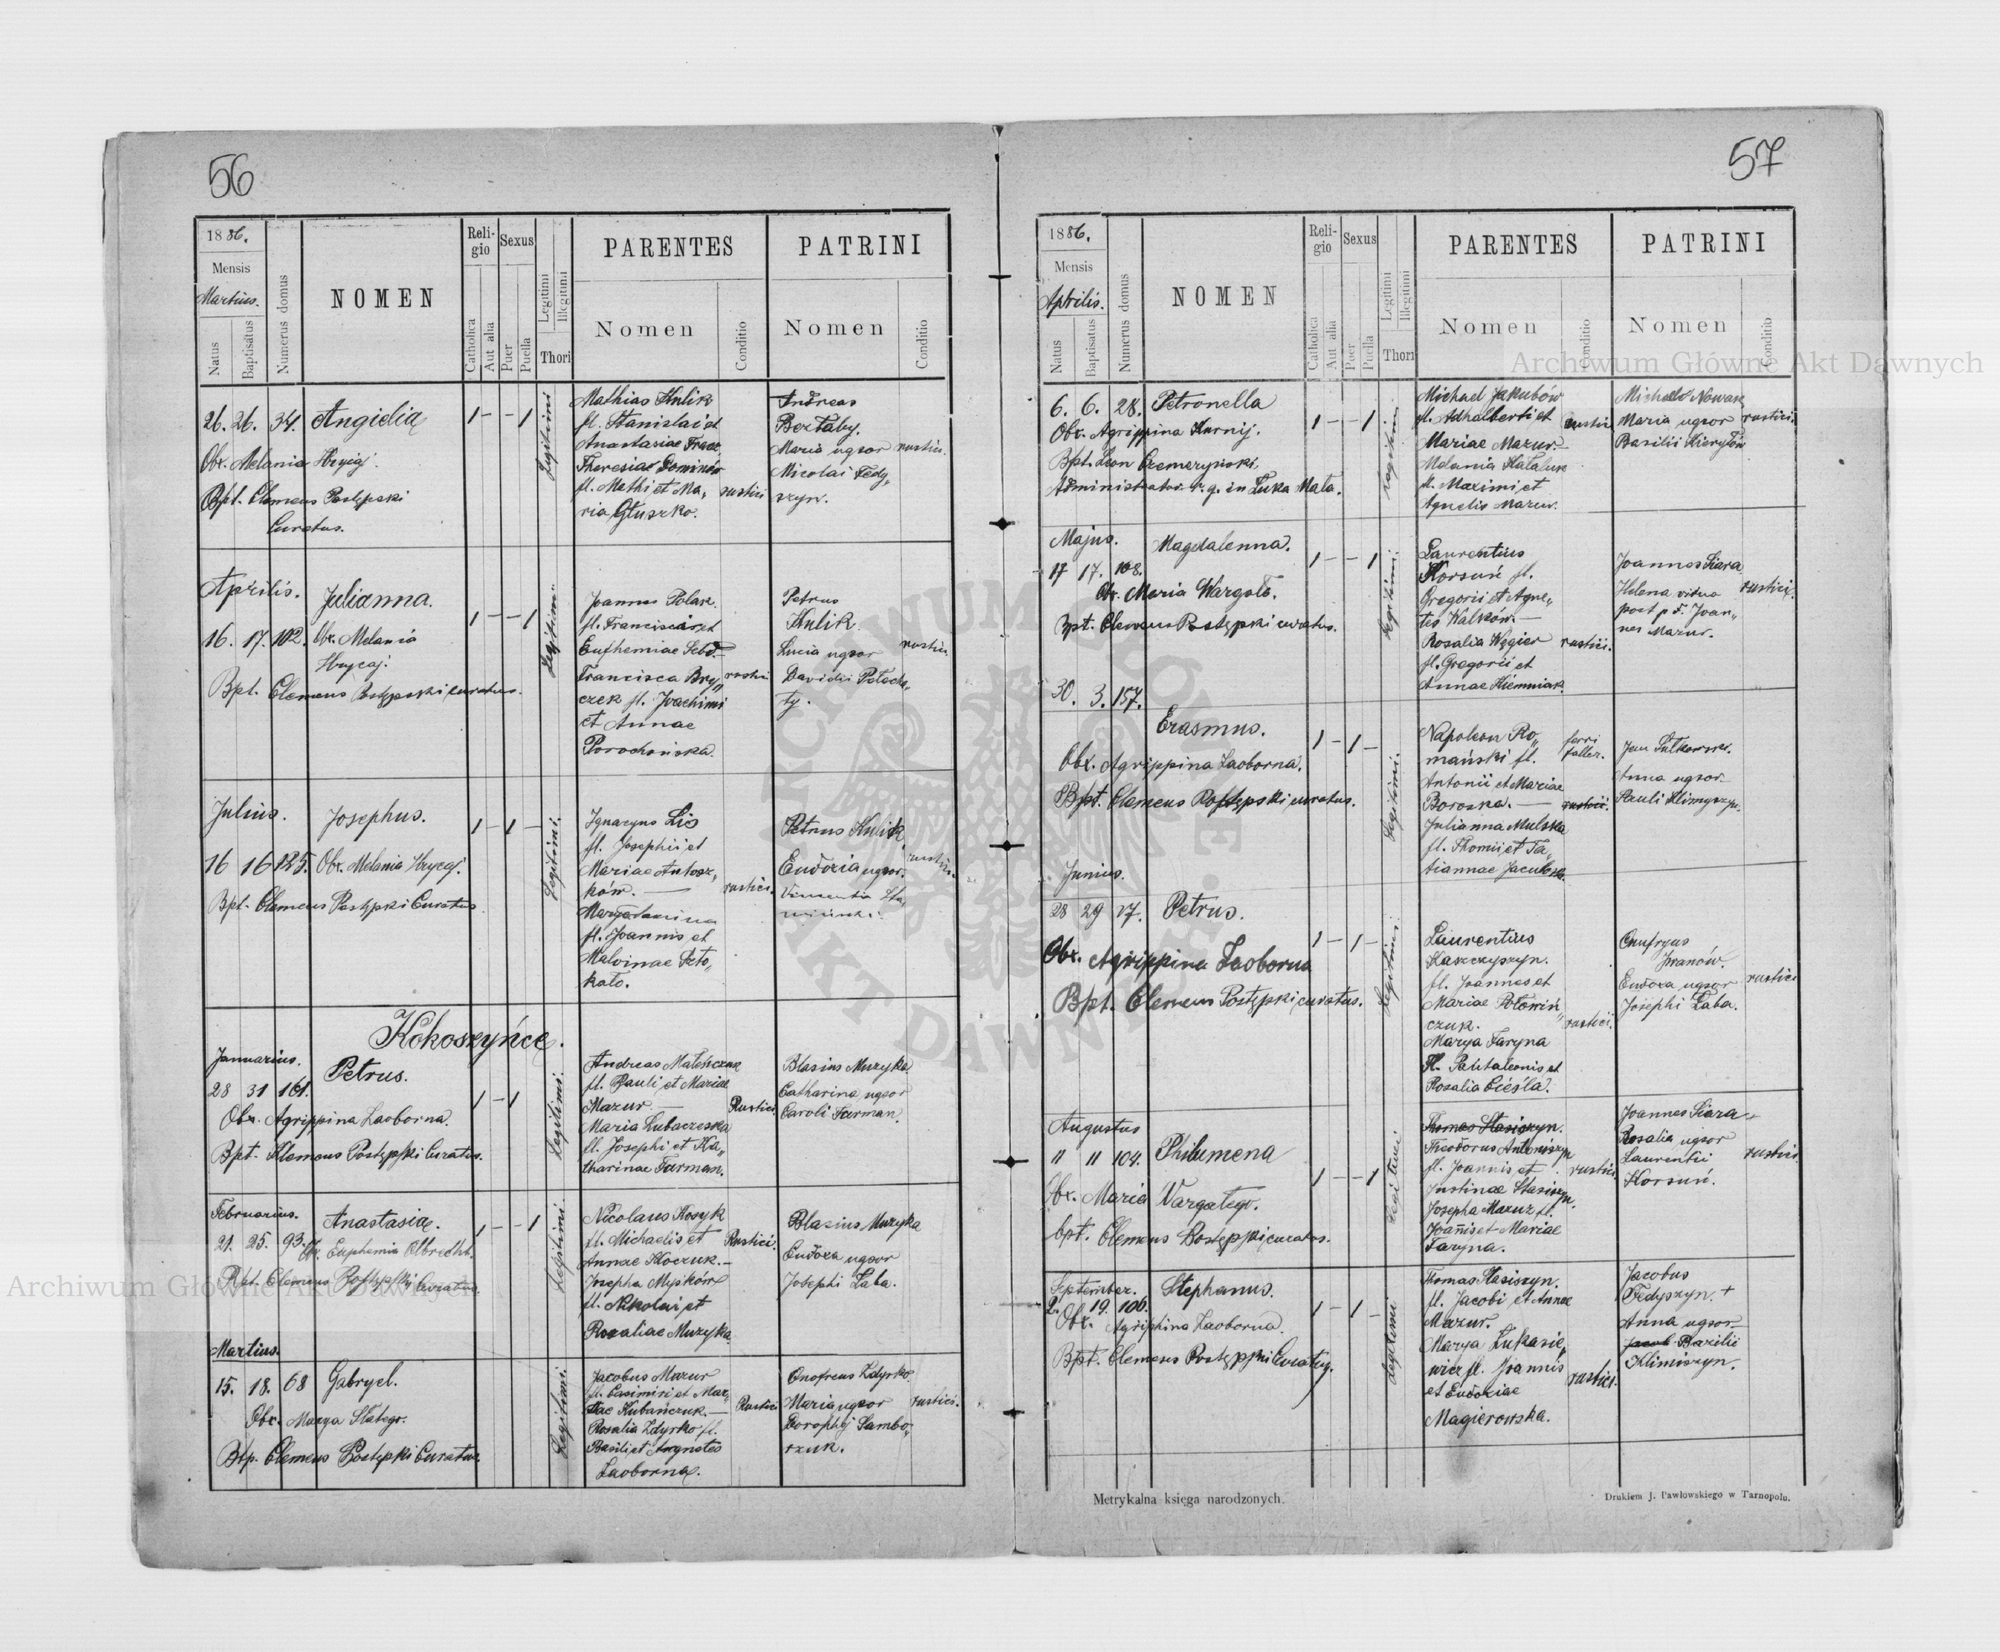 56
1886.
Mensis
Martius.
Natus
Baptisatus
Numerus domus
NOMEN
Reli-
gio
Catholica
Aut alia
Sexus
Puer
Puella
Legitimi
Illegitimi
Thori
PARENTES
Nomen
Conditio
PATRINI
Nomen
Conditio
26. 26. 34. Angielia
Obx. Melania Hrycaj.
Bpt. Clemens Postępski
Curatus.
1 - - 1
Legitimi
Mathias Kulik
fl. Stanislai et
Anastasiae Tracz
Theresia Dominów
fl. Mathi et Ma,
ria Głuszko.
rustici
Andreas
Boxłaby.
Maria uxor
Nicolai Fedy
szyn.
rustici.
Aprilis. Julianna.
16. 17. 102. Obx. Melania
Hrycaj.
Bpt. Clemens Postępski curatus.
1 - - 1
Legitimi.
Joannes Polak
fl. Francisci et
Eufhemiae
Francisca Bry,,
czek fl. Joachimi
et Annae
Porochońska.
rustici
Petrus
Kulik
Lucia uxor
Davidis
rustici
Julius. Josephus.
16 16 125. Obx. Melania Hrycaj.
Bpt. Clemens Postępski Curatus
1 - 1 -
Legitimi.
Ignacyus Lis
fl. Josephi et
Mariae Antosz,,
ków.
fl. Joannis et
Malvinae
rustici.
Petrus Kulik
Eudoxia uxor.
rustici.
Kokoszyńce.
Januarius. Petrus.
28 31 161.
Obx. Agrippina Zaoborna.
Bpt. Klemens Postępski Curatus.
1 - 1
Legitimi.
Andreas Mateńczuk
fl. Pauli et Mariae
Mazur
Maria Lubaczeska
fl. Josephi et Ka,,
tharinae Furman.
Rustici.
Blasius Muzyka
Catharina uxor
Caroli Furman.
Februarius. Anastasia.
21. 25. 93. Obx. Euphemia Olbrecht.
Bpt. Clemens Postępski Curatus.
1 - - 1
Legitimi.
Nicolaus Kosyk
fl. Michaelis et
Annae Koczuk.
Josepha Myśków
fl. Nikolai et
Rosaliae Muzyka.
Rustici.
Blasius Muzyka
Eudoxa uxor
Josephi Łaba.
Martius.
15. 18. 68 Gabryel.
Obx. Marya
Btp. Clemens Postępski Curatus.
Legitimi.
Jacobus Mazur
fl. Casimiri et Mar,,
iae Kubańczuk.
Rosalia Zdyrko fl.
Basili et Agnetes
Zaoborna.
Rustici
Onofreus Zdyrko
Maria uxor
Dorophij Sambo,,
rzuk.
rustici.
57
1886.
Mensis
Aprilis.
Natus
Baptisatus
Numerus domus
NOMEN
Reli-
gio
Catholica
Aut alia
Sexus
Puer
Puella
Legitimi
Illegitimi
Thori
PARENTES
Nomen
Conditio
PATRINI
Nomen
Conditio
6. 6. 28. Petronella
Obx. Agrippina Kurnij.
Bpt. Leon
Administrator r. g. in Łuka Mała.
1 - - 1
Legitimi
Michael Jakubów
fl. Adhalberti et
Mariae Mazur.
Melania
fl. Maximi et
Agnelis Mazur.
rustici
Michael Nowak
Maria uxor
Basilii
rustici.
Majus. Magdalenna.
17 17. 108.
Obx. Maria Wargato.
Bpt. Clemens Postępski curatus.
1 - - 1
Legitimi.
Laurentius
Korsuń fl.
Gregorii et Agne,,
tes Walków.
Rosalia Węgier
fl. Gregorii et
Annae Kiemniak.
rustici.
Joannes Siara
Helena vidua
post p. d. Joan,,
nes Mazur.
rustici.
30. 3. 157. Erasmus.
Obx. Agrippina Zaoborna.
Bpt. Clemens Postępski curatus.
1 - 1 -
Legitimi.
Napoleon Ro,,
mański fl.
Antonii et Mariae
Boroska.
Julianna Mulska
fl. Thomii et Ta,,
tiannae
ferri
faber.
rustici.
Jan
Anna uxor
Pauli Klimyszyn.
Junius. Petrus.
28 29 17.
Obx. Agrippina Zaoborna
Bpt. Clemens Postępski curatus.
1 - 1 -
Legitimi.
Laurentius
Kaszczyszyn.
fl. Joannes et
Mariae Połowiń,,
czuk.
Marya Faryna
fl. Pantaleonis et
Rosalia Cieśla.
rustici.
Onufryus
Iwanów.
Eudoxa uxor
Josephi Łaba.
rustici
Augustus Philumena
11 11 104.
Obx. Maria Wargatego.
bpt. Clemens Postępski curatus.
1 - - 1
Legitimi
Thomas Stasiszyn.
Theodorus Antoniszyn
fl. Joannis et
Justinae Stasiszyn.
Josepha Mazur fl.
Joannis et Mariae
Faryna.
rustici
Joannes Siara
Rosalia uxor
Laurentii
Korsuń.
rustici.
September. Stephanus.
2. 19. 106.
Obx. Agriphina Zaoborna.
Bpt. Clemens Postępski Curatus.
1 - 1 -
Legitimi
Thomas Stasiszyn.
fl. Jacobi et Annae
Mazur.
Marya Łukasie,,
wicz fl. Joannis
et Eudoxiae
Magierowska.
rustici.
Jacobus
Fedyszyn. +
Anna uxor
Jacob Bazilii
Klimiszyn.
Metrykalna księga narodzonych.
Drukiem J. Pawłowskiego w Tarnopolu.
Archiwum Główne Akt Dawnych
Archiwum Główne Akt Dawnych
ARCHIWUM GŁÓWNE
AKT DAWNYCH